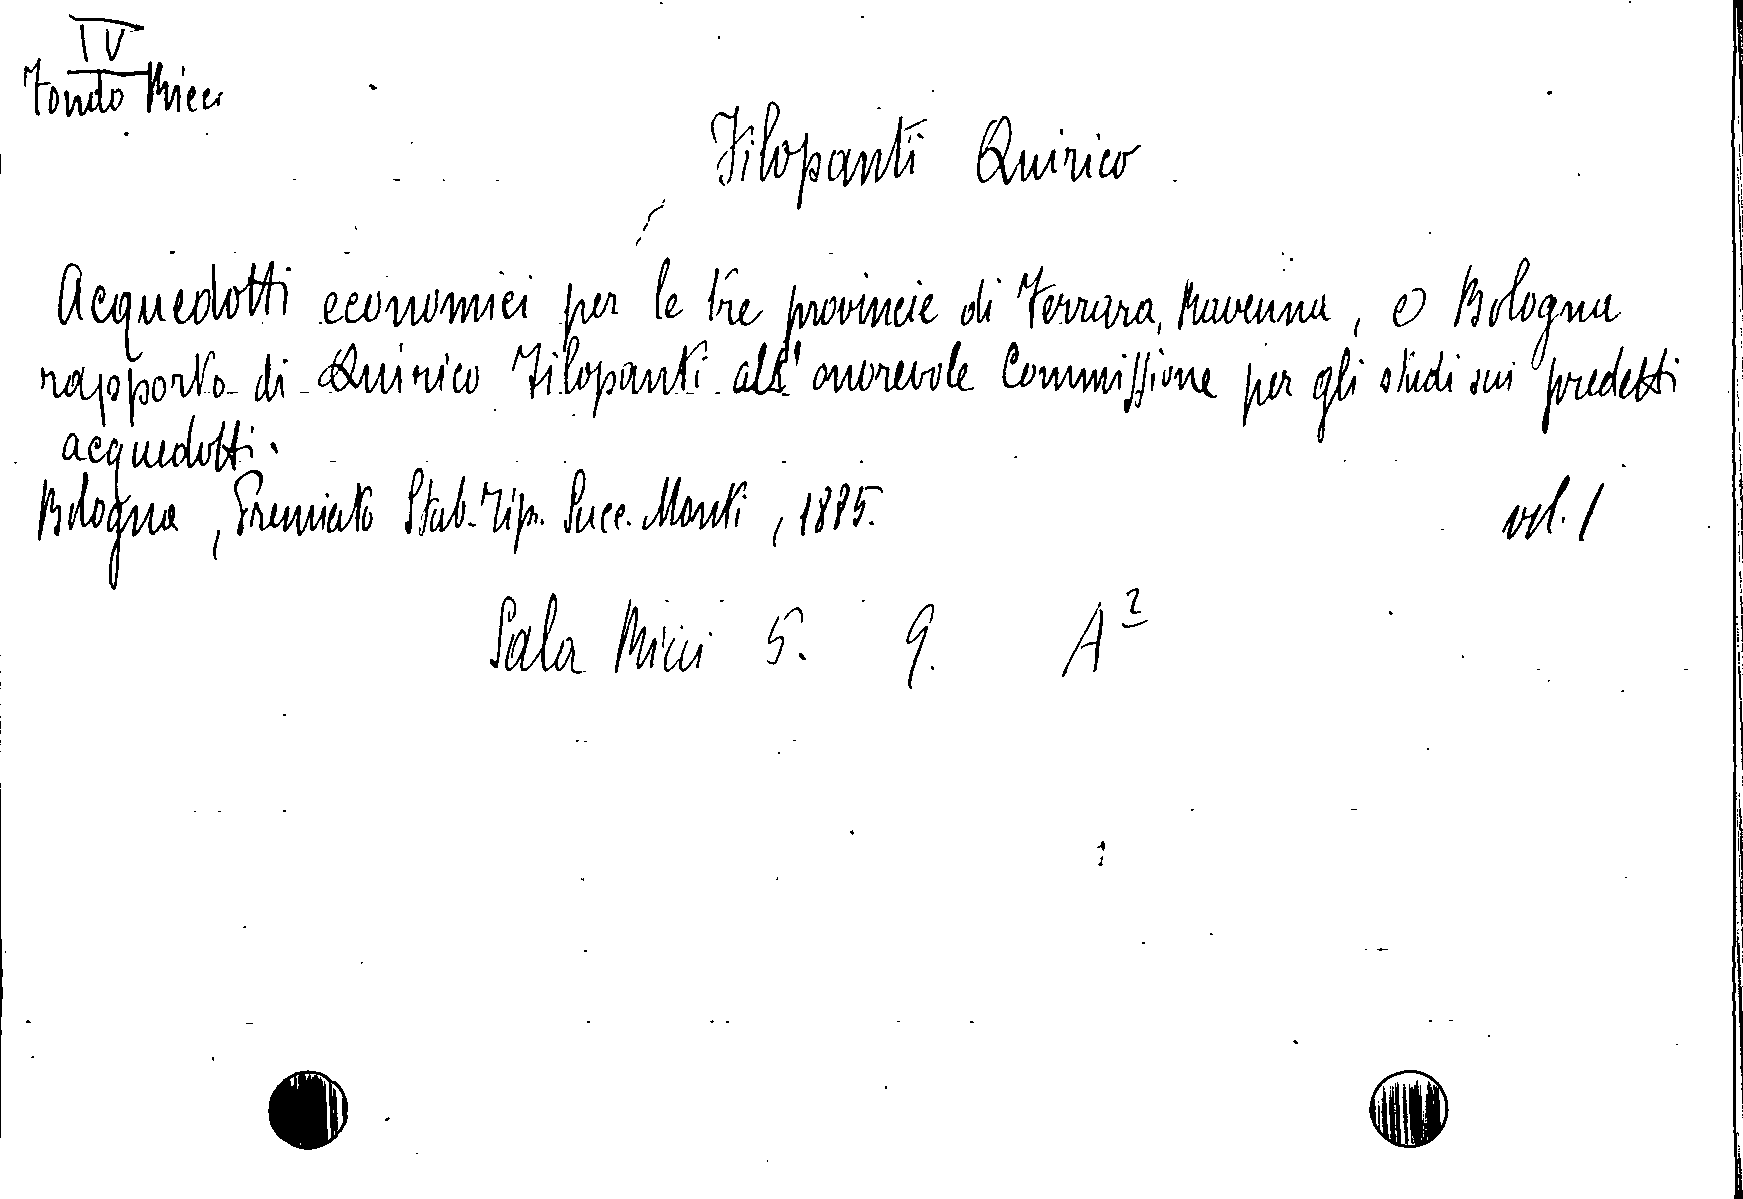 IV
Fondo Ricci
Filopanti Quirico
Acquedotti economici per le tre provincie di Ferrara, Ravenna, e Bologna
rapporto di Quirico Filopanti all'onorevole Commissione per gli studi sui predetti
acquedotti.
Bologna, Premiato Stab. Tip. Succ. Monti, 1885. vol. 1
Sala Ricci 5. 9. A2